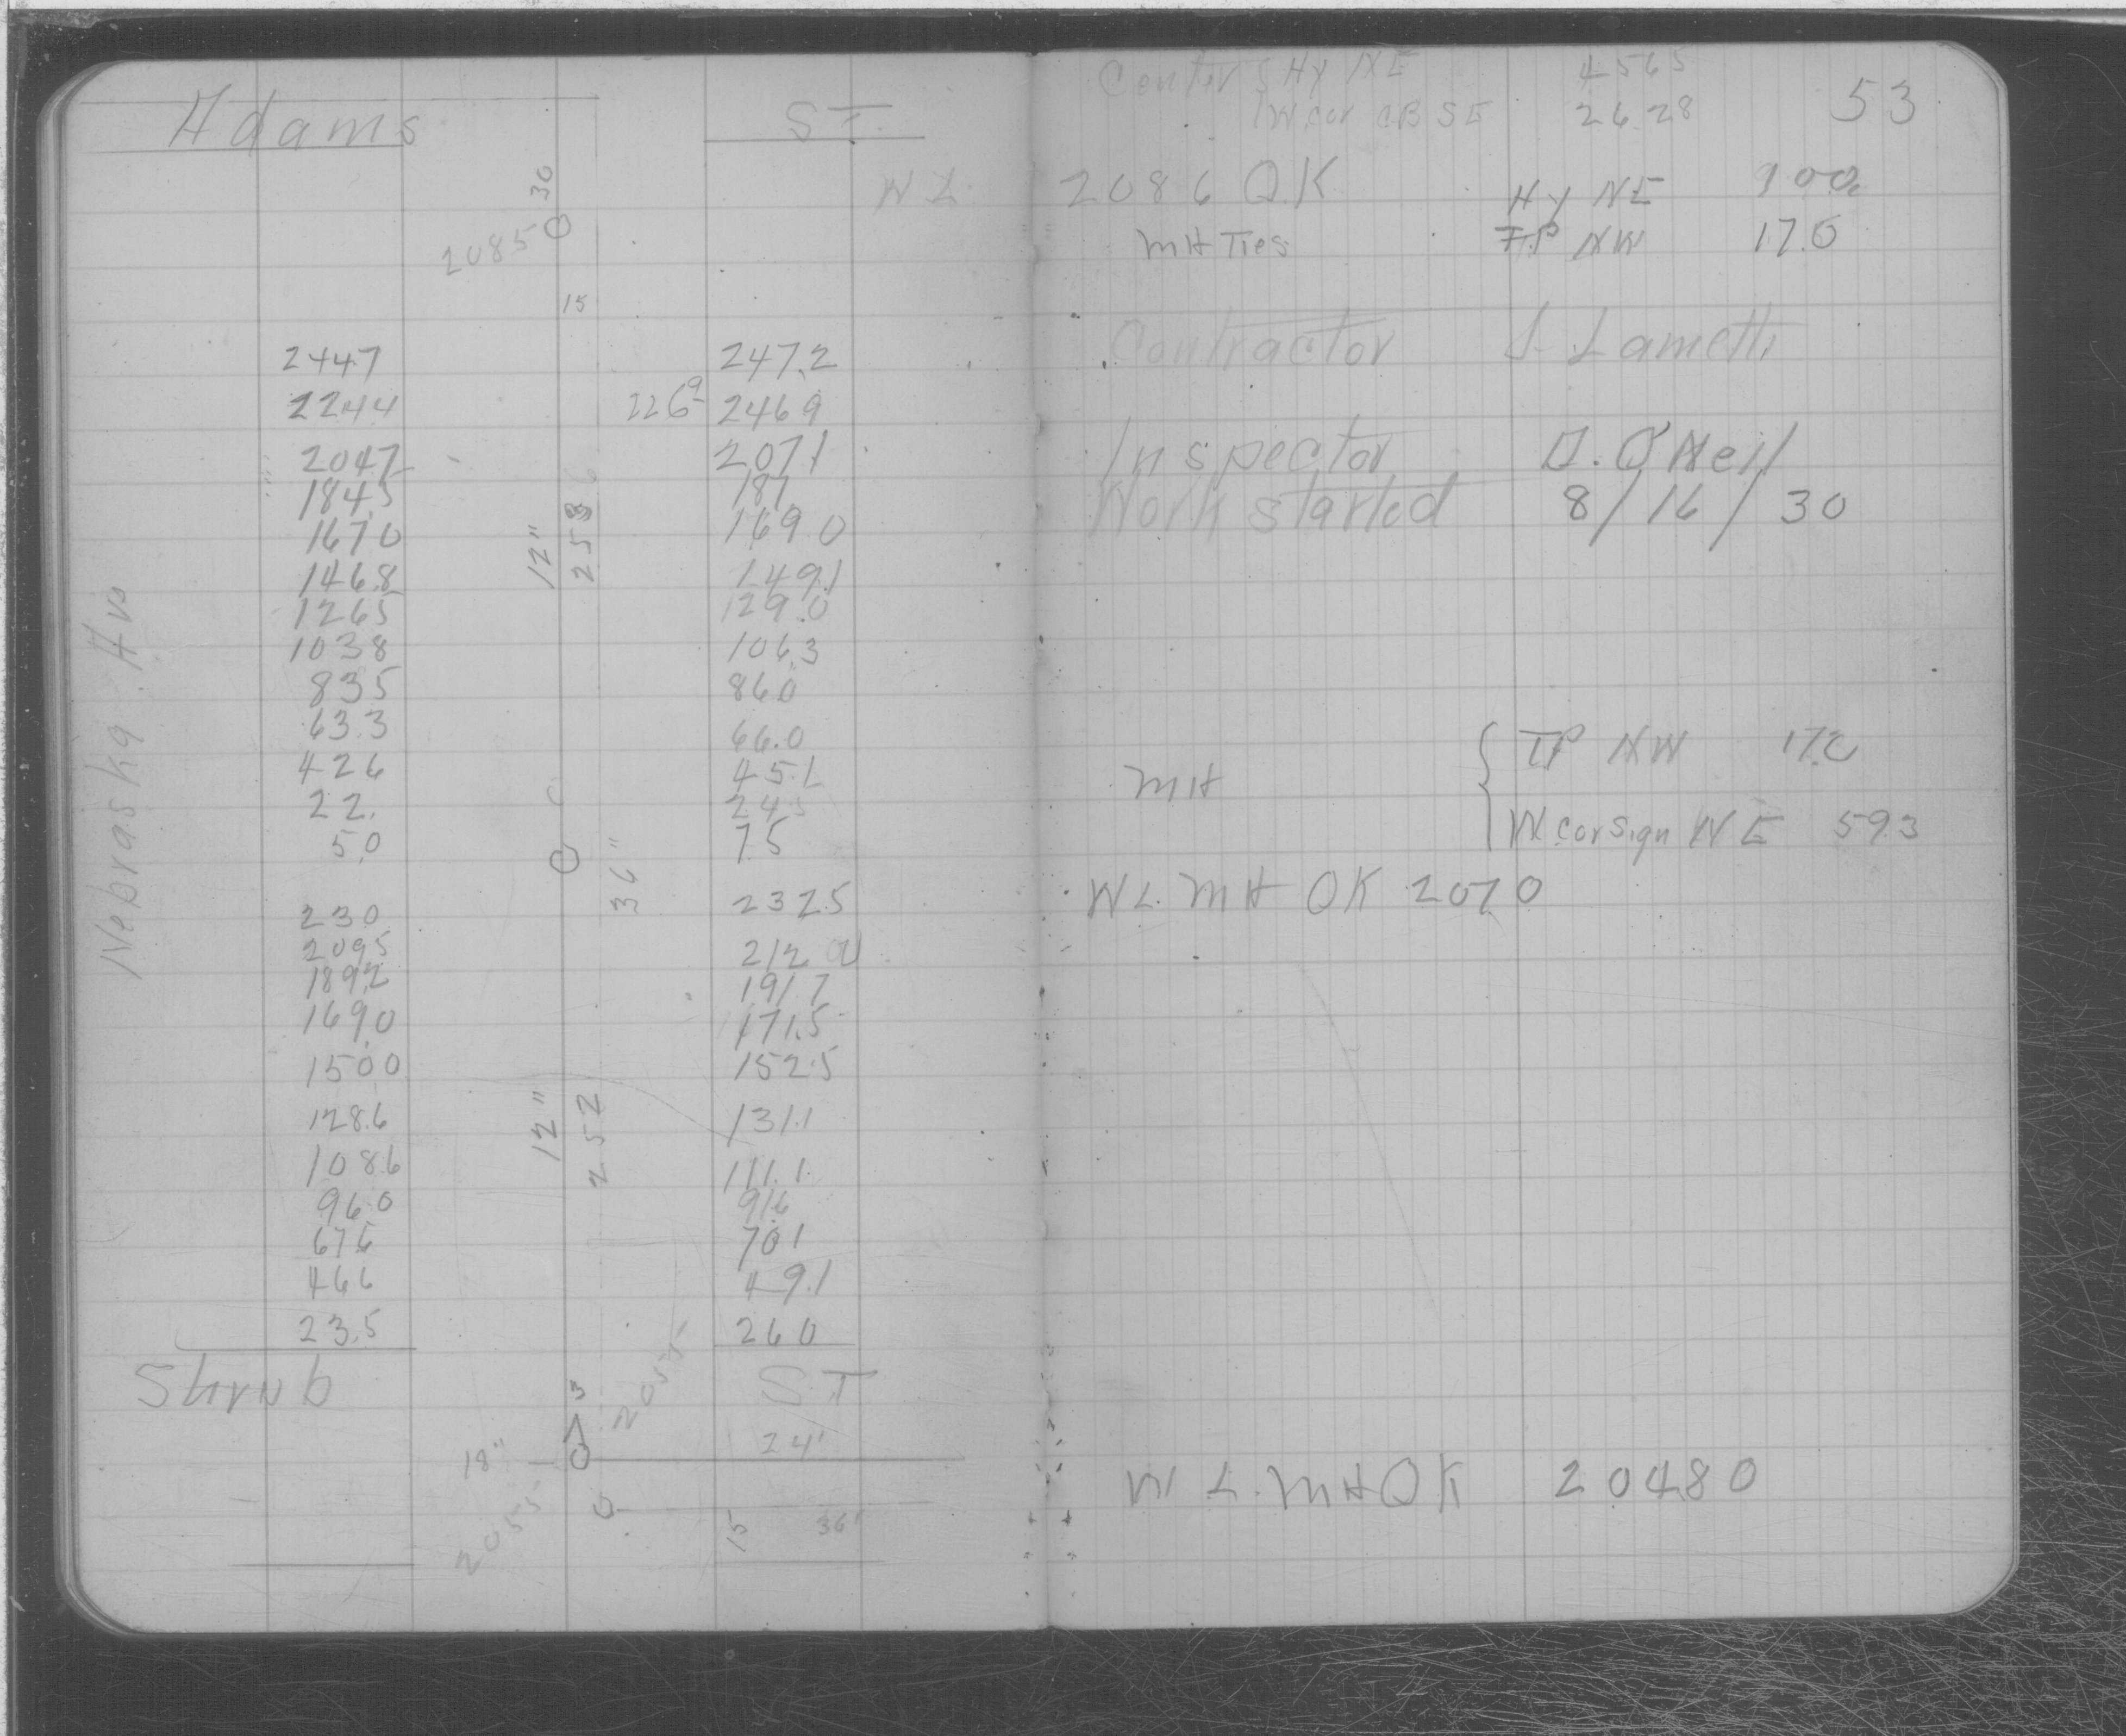 Adams ST.
30
2085
15
2447 247.2
2244 226⁹ 2469
2047 2071
184.5 187
1670 169.0
146.8 149.1
1265 129.0
1038 106.3
835 860
63.3 66.0
426 45.1
22. 24.5
5.0 7.5
12"
258
Nebraska Av
36"
230 232.5
209.5 212.0
189.2 191.7
169.0 171.5
150.0 152.5
128.6 131.1
108.6 111.1
96.0 91.6
67.6 70.1
46.6 49.1
23.5 26.0
12"
252
Shrub ST
3
2055
18" 24'
2055
15 36'
53
Center S Hy NE 4565
W cor CB SE 26.28
WL 2086 OK Hy NE
MH Ties T.P NW 17.0
Contractor J. Lametti
Inspector D. O'Neil
Work started 8/16/30
MH TP NW 17.0
W cor Sign NE 593
WL. MH OK 207.0
W L. MH OK 204.80